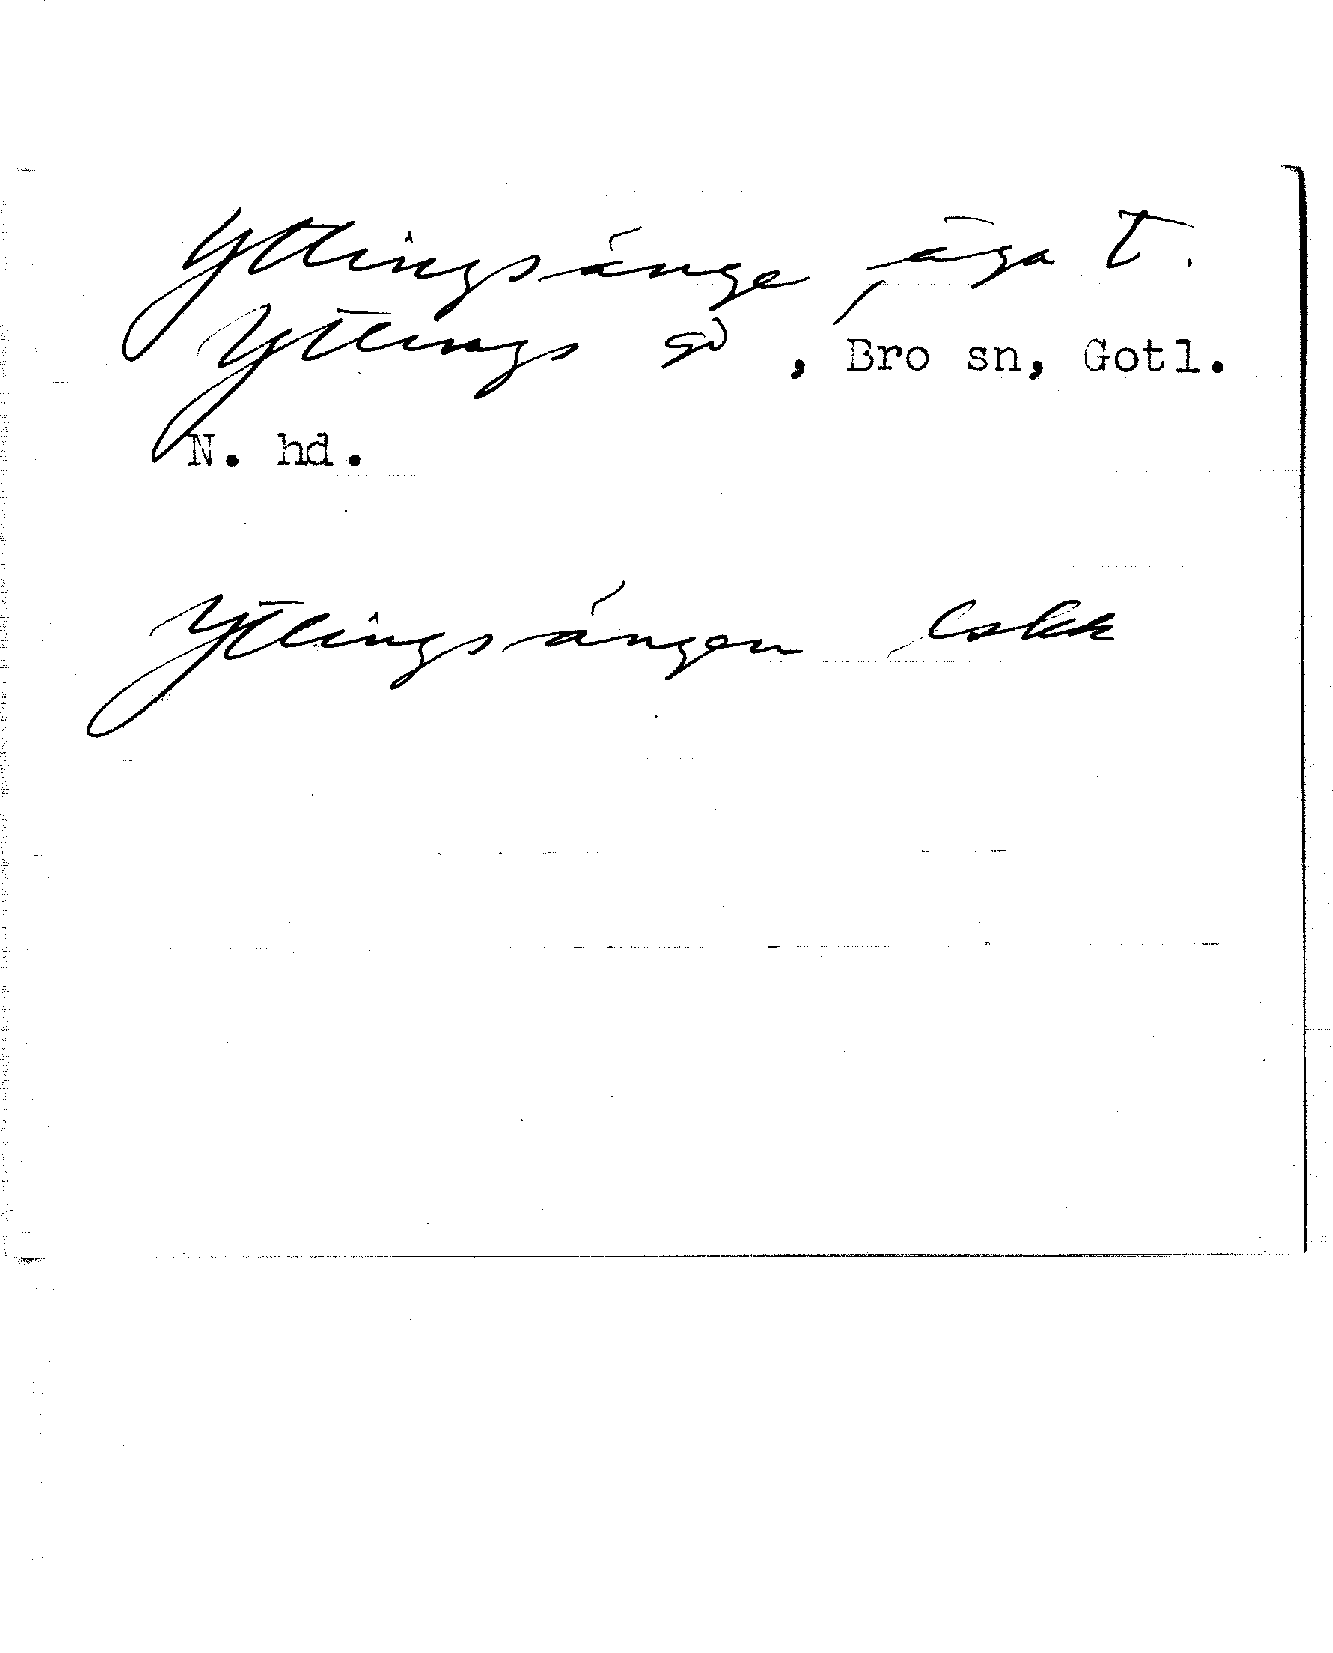 Ytlingsänge, äga t.
Ytlings gd, Bro sn, Gotl.
N. hd.
Ytlingsängen Lskk